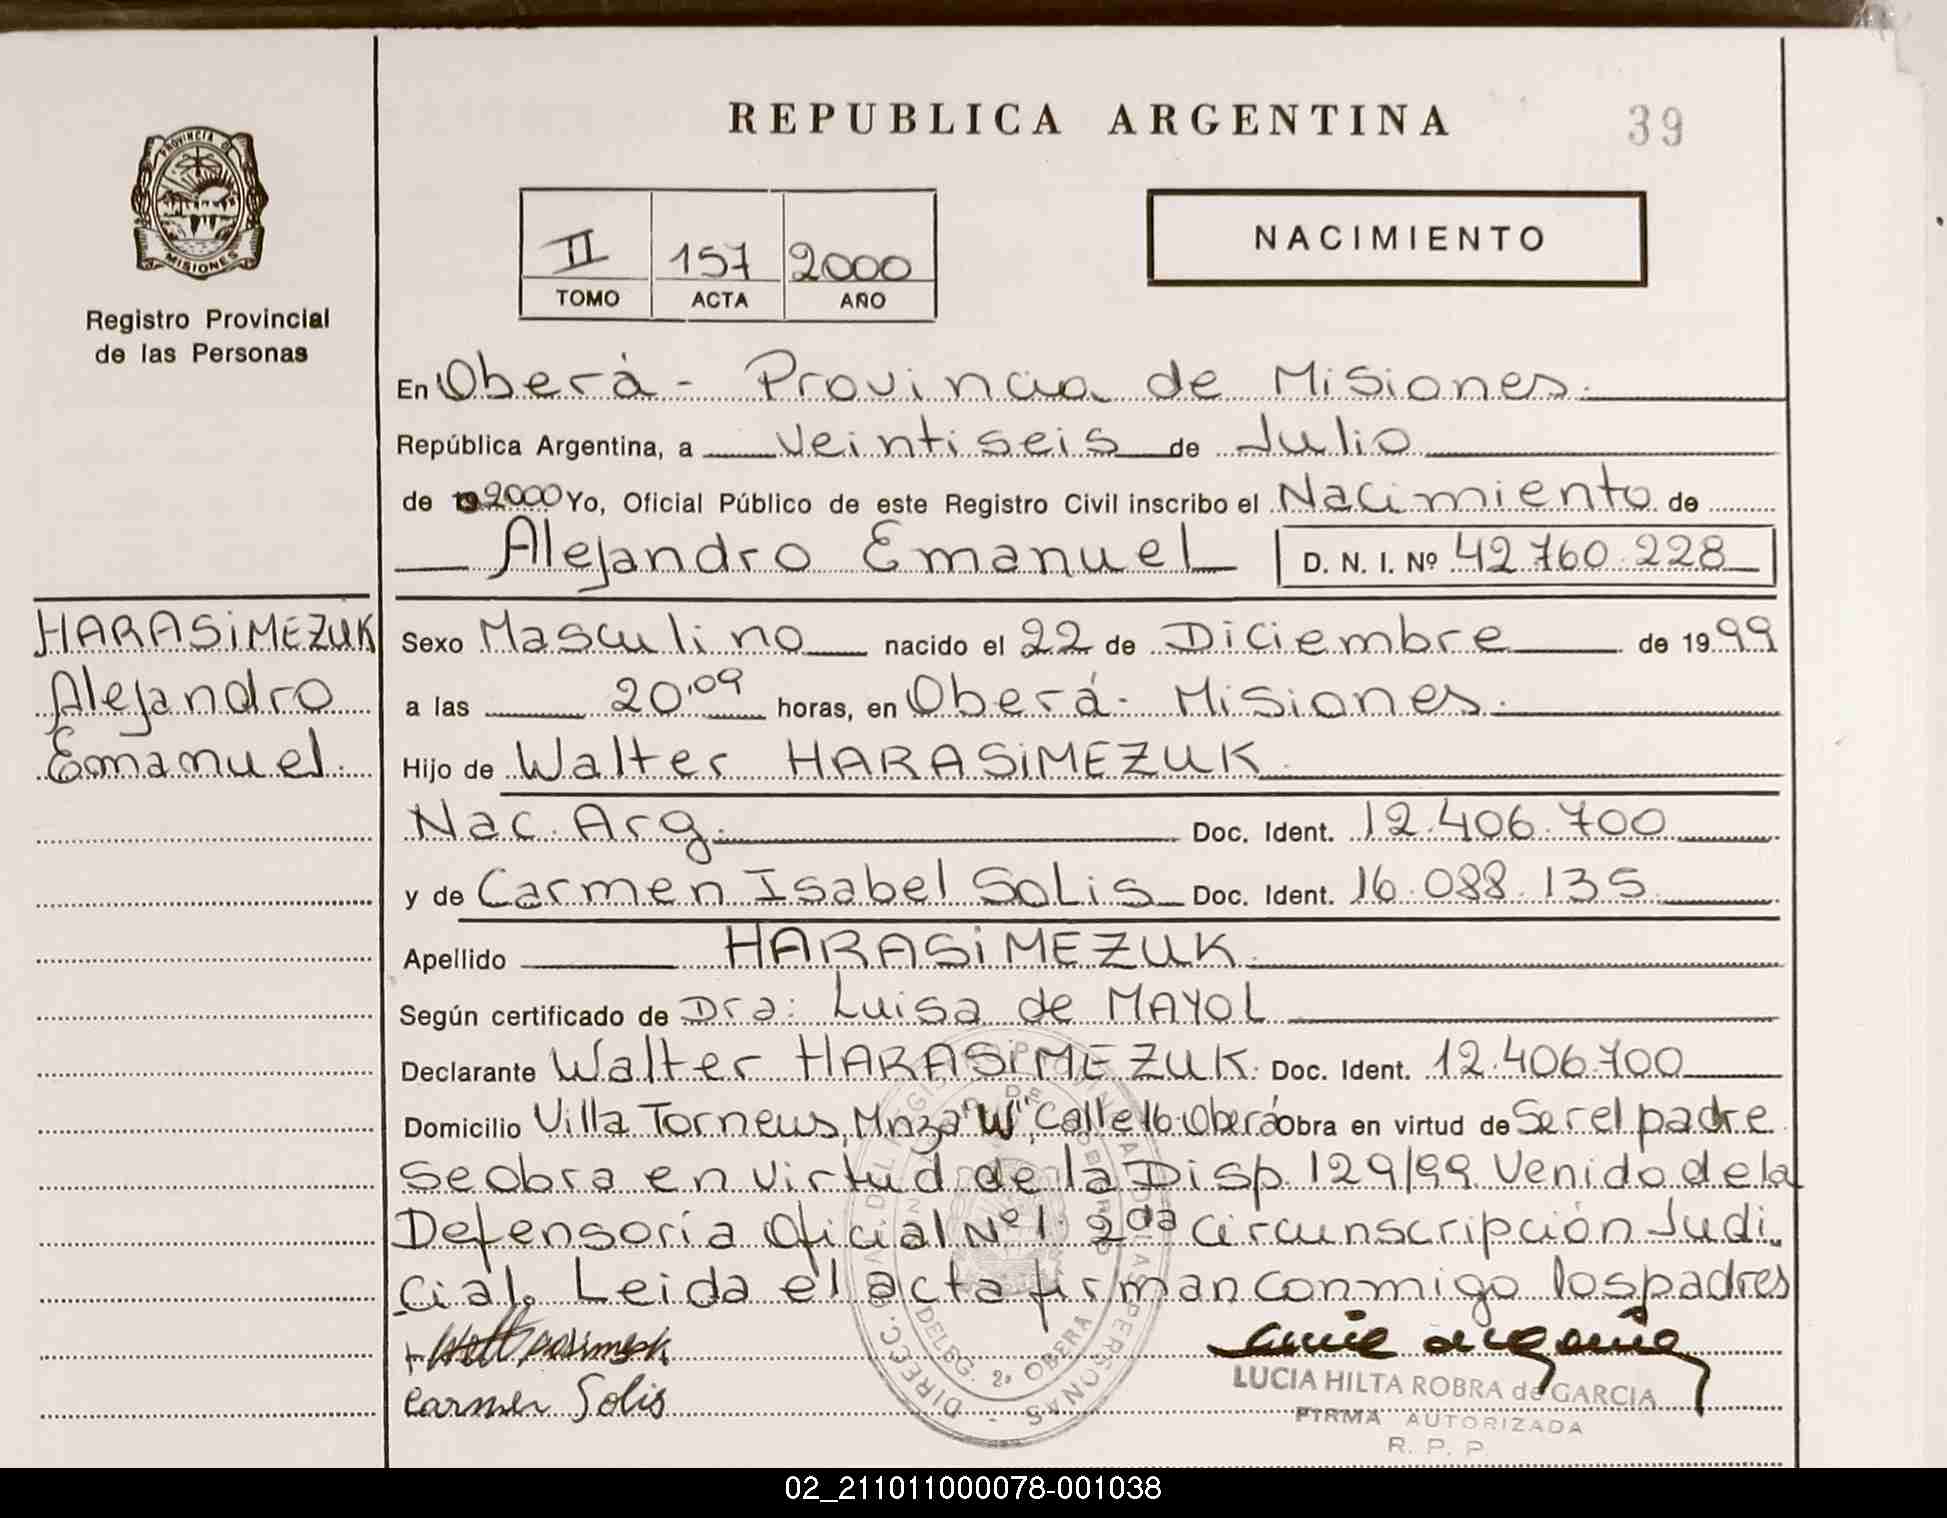 REPUBLICA ARGENTINA
39
PROVINCIA DE
MISIONES
Registro Provincial
de las Personas
II 157 2000
TOMO ACTA AÑO
NACIMIENTO
En Oberá - Provincia de Misiones.
República Argentina, a veintiseis de Julio
de 2000 Yo, Oficial Público de este Registro Civil inscribo el Nacimiento de
Alejandro Emanuel D. N. I. Nº 42.760.228
HARASiMEZUK
Alejandro
Emanuel.
Sexo Masculino nacido el 22 de Diciembre de 1999
a las 20,09 horas, en Oberá - Misiones.
Hijo de Walter HARASiMEZUK.
Nac. Arg. Doc. Ident. 12.406.700
y de Carmen Isabel SOLIS Doc. Ident. 16.088.135
Apellido HARASiMEZUK.
Según certificado de Dra: Luisa de MAYOL
Declarante Walter HARASiMEZUK. Doc. Ident. 12.406.700
Domicilio Villa Torneus, Mnza "W", Calle 16 Oberá Obra en virtud de Ser el padre
Se obra en virtud de la Disp. 129/99 Venido de la
Defensoría Oficial Nº 1. 2da Circunscripción Judi
cial. Leida el acta firman conmigo los padres
Carmen Solis
DELEG. 2ª OBERA
LUCIA HILTA ROBRA de GARCIA
FIRMA AUTORIZADA
R. P. P.
02_211011000078-001038